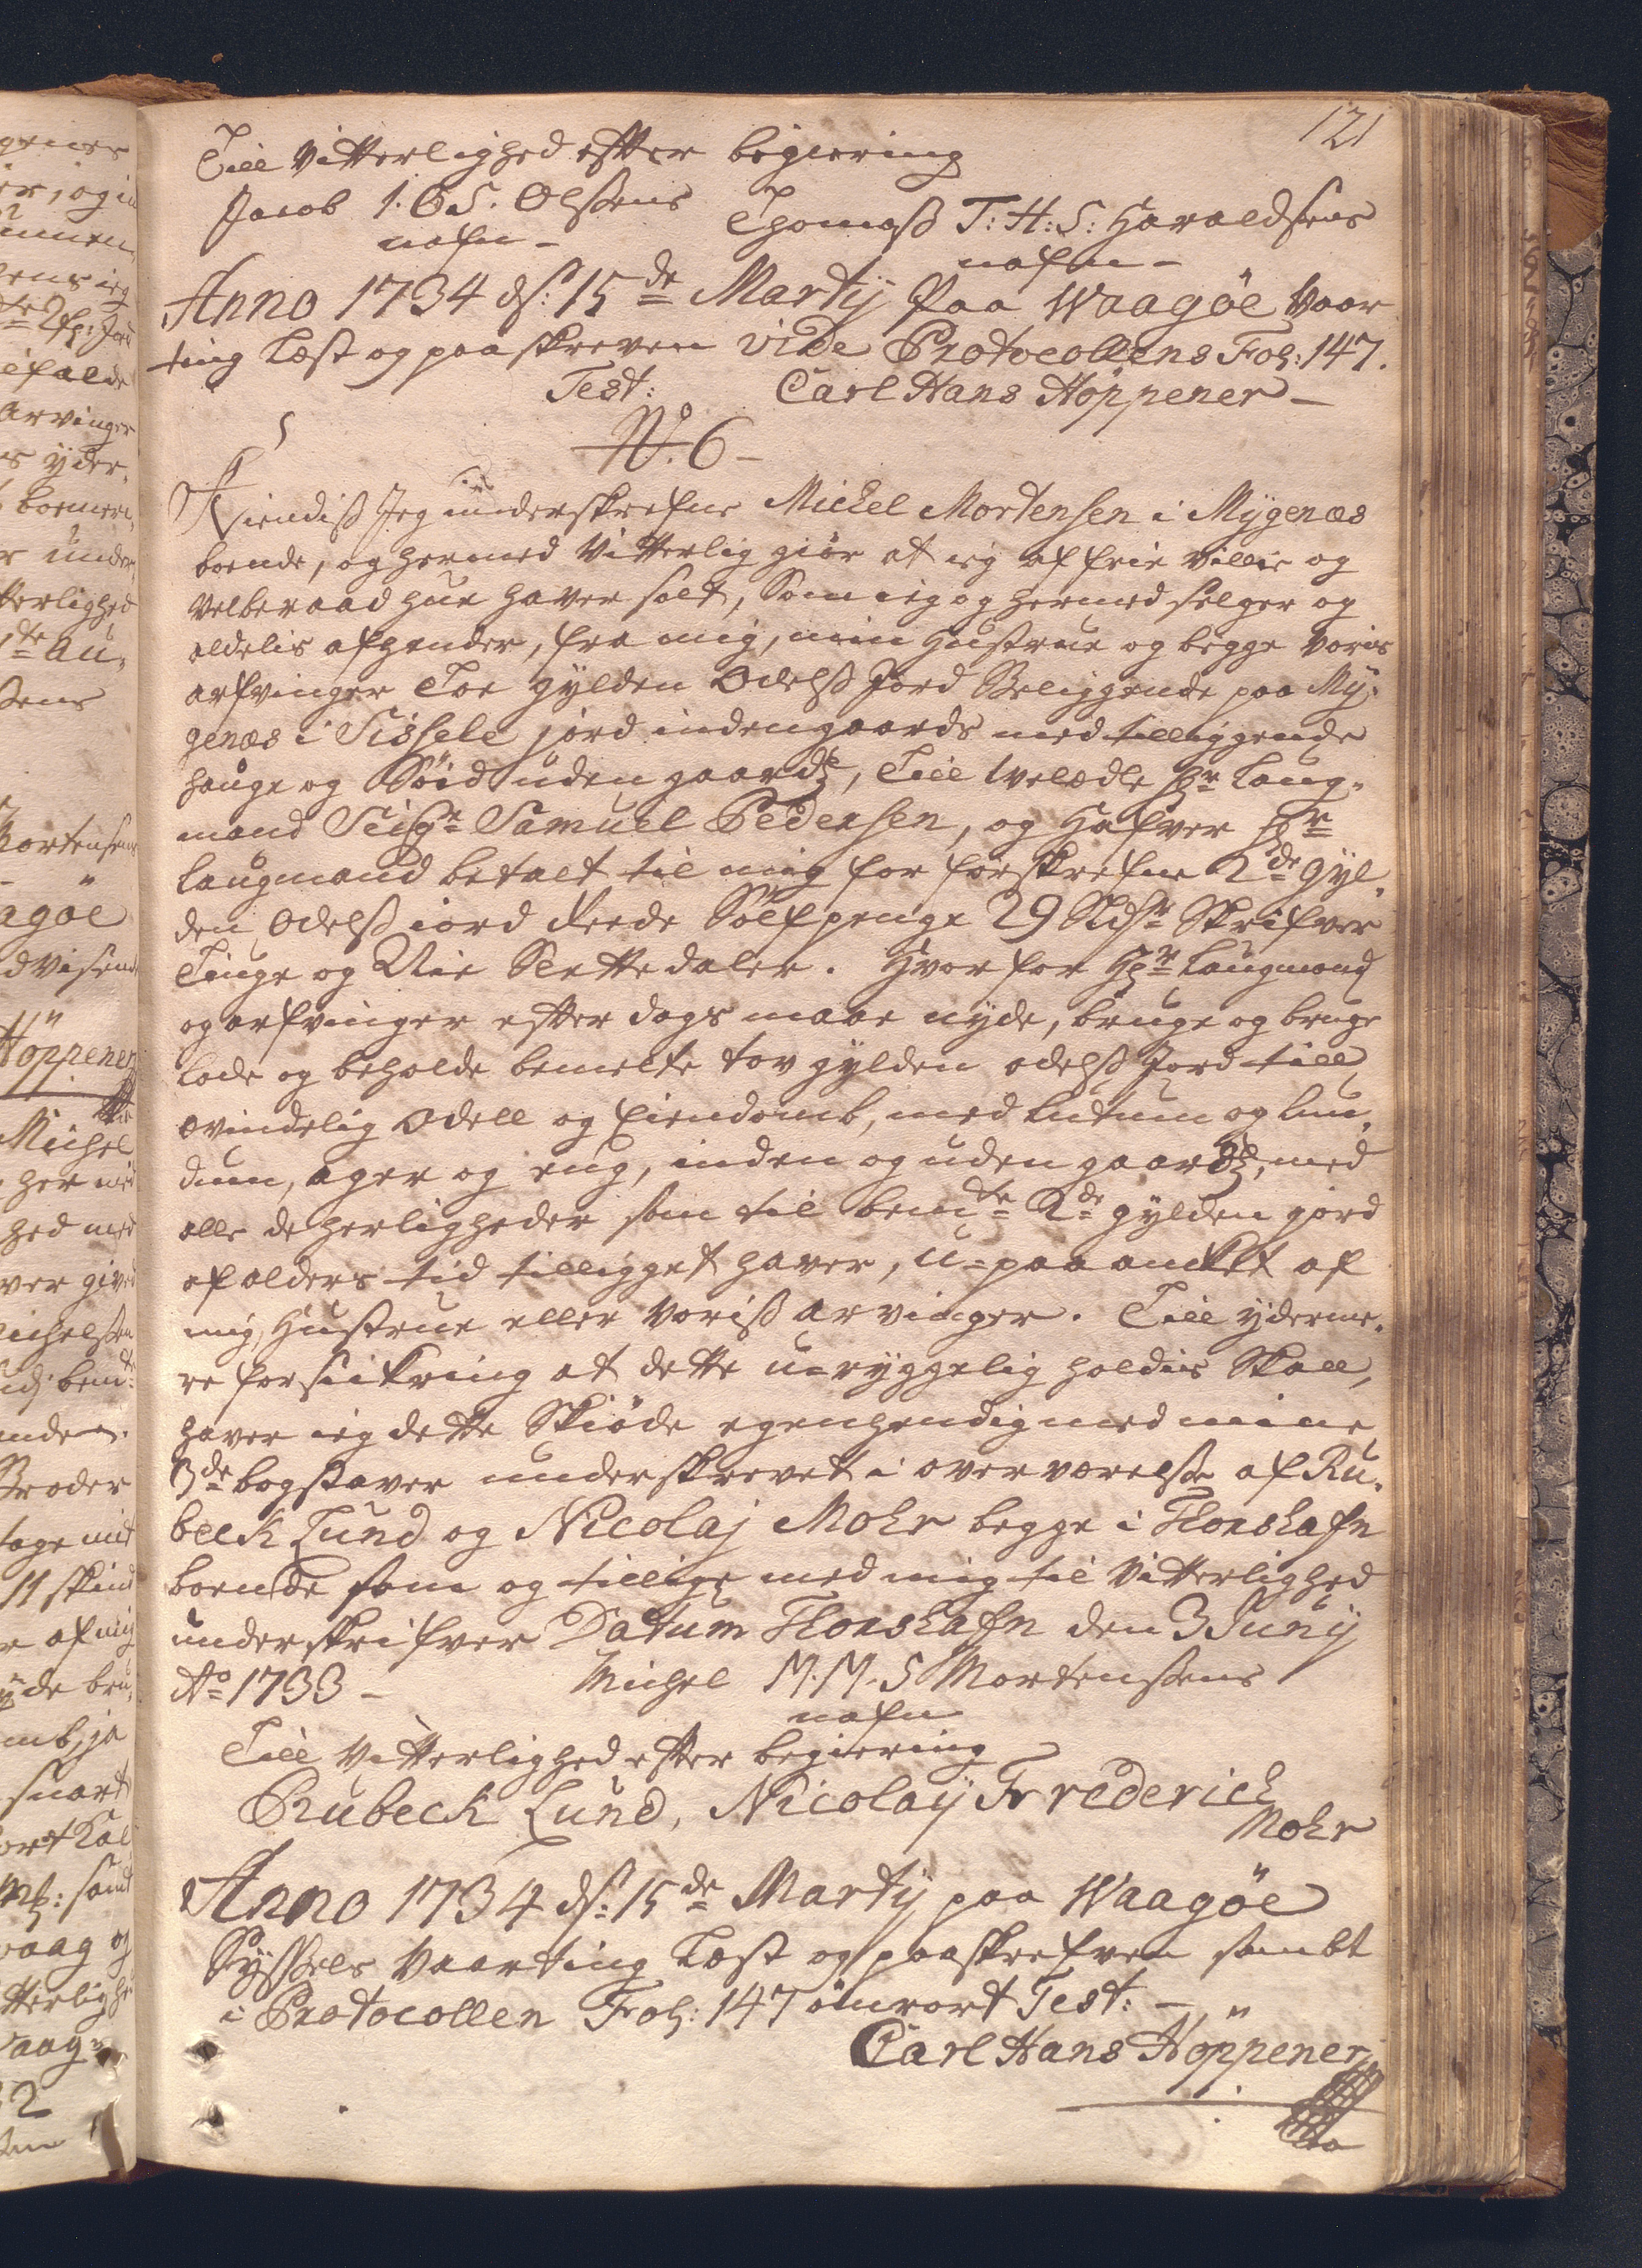 121
Till Vitterlighed efter begiering
Jacob I. O S. Olssens Thomass T: H: S: Haraldsens
nafn - nafn -
Anno 1734 ds: 15de Martij paa Waagöe Vaar
ting Læst og paaskreven vide Protocollens Fol: 147.
Test: Carl Hans Höppener -
No. 6 -
Kiendiss Jeg underskrefne Michel Mortensen i Mygenæs
boende, og hermed Vitterlig giör at ieg af frie villie og
velberaad hue haver solt, Som ieg og hermed selger og
aldelis afhender, fra mig, min Hustrue og begge voris
arfvinger Toe gylden Odelss Jord Beliggende paa My,
genæs i Sissele jord indengaards med tilliggende
hauge og Böid uden gaards, Till Welædle Hr Laug,
mand Seigr Samuel Pedersen, og Hafver Hr
Laugmand betalt til mig for forskrefne 2de gyl,
den Odelss iord Reede Sölfpenge 29 Rdlr Skrifver
Tiuge og Nie Slettedaler. Hvor for Hr Laugmand
og arfvinger efter dags maae nyde, bruge og bruge
lade og beholde bemelte tov gylden odelss Jord till
ævindelig Odell og Eiendomb, med lutum og lun,
dum, ager og eng, inden og uden gaards, med
alle de herligheder som til bemte 2de gylden jord
af alders tid tilligget haver, u-paaanket af
mig, Hustrue eller Voriss arvinger. Till yderme,
re forsickring at dette u-ryggelig holdis Skall,
haver ieg dette Skiöde egenhendig med mine
3de bogstaver underskrevet i overværelse af Ru,
beck Lund og Nicolaj Mohr begge i Thorshafn
boende som og tillige med mig til Vitterlighed
underskrifver Datum Thorshafn den 3 Junij
Ao 1733 - Michel M. M. S Mortensens
nafn
Till Vitterlighed efter begiering
Rubeck Lund, Nicolaij Frederich
Mohr
Anno 1734 ds: 15de Martij paa Waagöe
Syssels Vaarting Læst og paaskrefven sambt
i Protocollen Fol: 147 omrört Test: -
Carl Hans Höppener